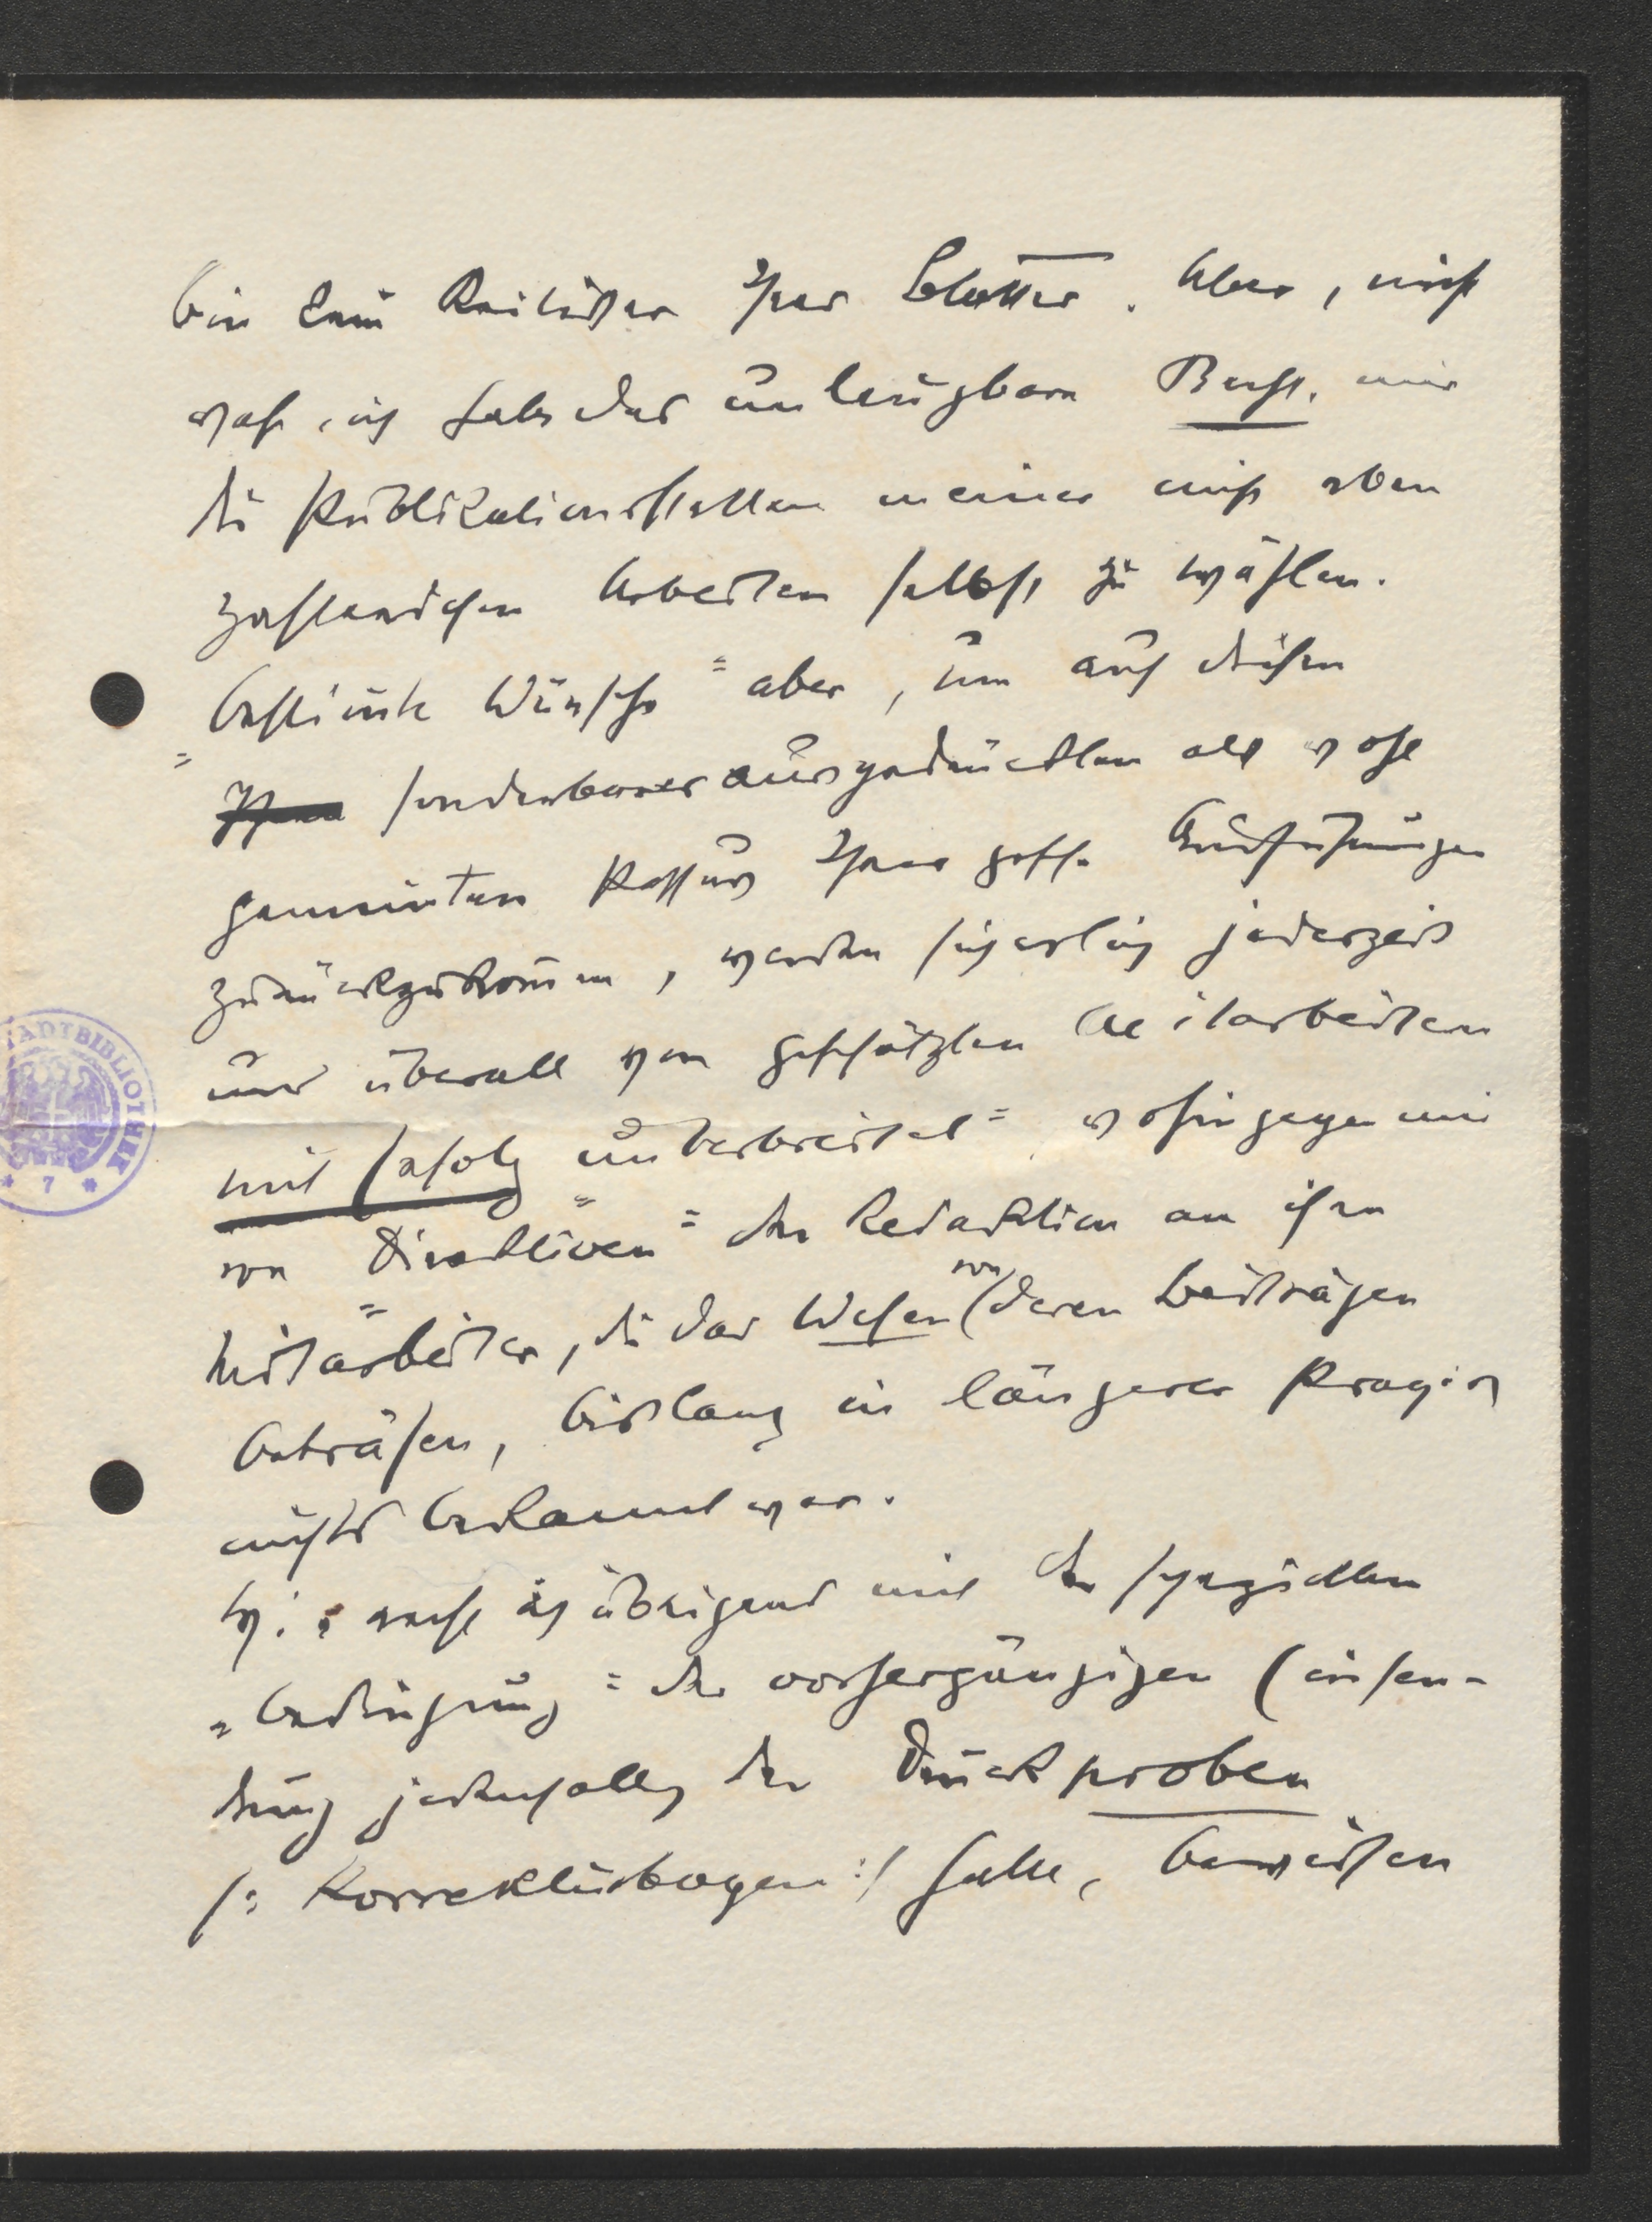 bin kein Kritiker Ihrer Blätter. Aber, nicht
wahr, ich habe das unleugbare Recht, mir
die Publikationsstellen meiner nicht eben
zahlreichen Arbeiten selbst zu wählen.
„Bestimmte Wünsche" aber, um auf diesen
sonderbarer ausgedrückten als wohl
gemeinten Passus Ihrer gesch. Ausführungen
zurückzukommen, werden sicherlich jederzeit
und überall von geschätzten Mitarbeitern
mit Erfolg unterbreitet" wohingegen mir
von „Direktiven" der Redaktion an ihre
Mitarbeiter, die das Wesen von deren Beiträgen
beträfen, bislang in längerer Praxis
nichts bekannt war.
Wie recht ich übrigens mit der speziellen
„Bedingung" der vorhergängigen Einsen-
dung jedenfalls der Druckproben
/: Korrekturbogen :/ hatte, beweisen
STADTBIBLIOTHEK
* 7 *